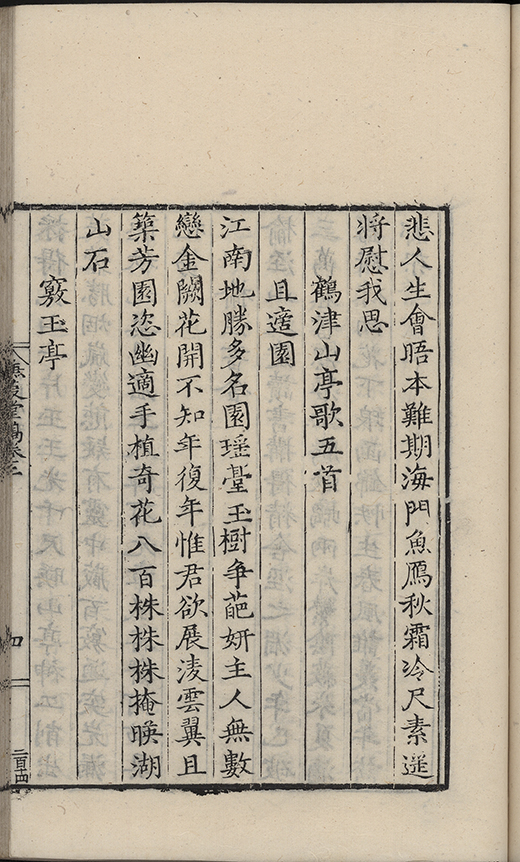 悲人生會晤本難期海門魚鴈秋霜冷尺素遥
將慰我思
鶴津山亭歌五首
且適園
江南地勝多名園瑶臺玉樹争葩妍主人無數
戀金闕花開不知年復年惟君欲展凌雲翼且
築芳園恣幽適手植奇花八百株株株掩暎湖
山石
竅玉亭
四
二百四